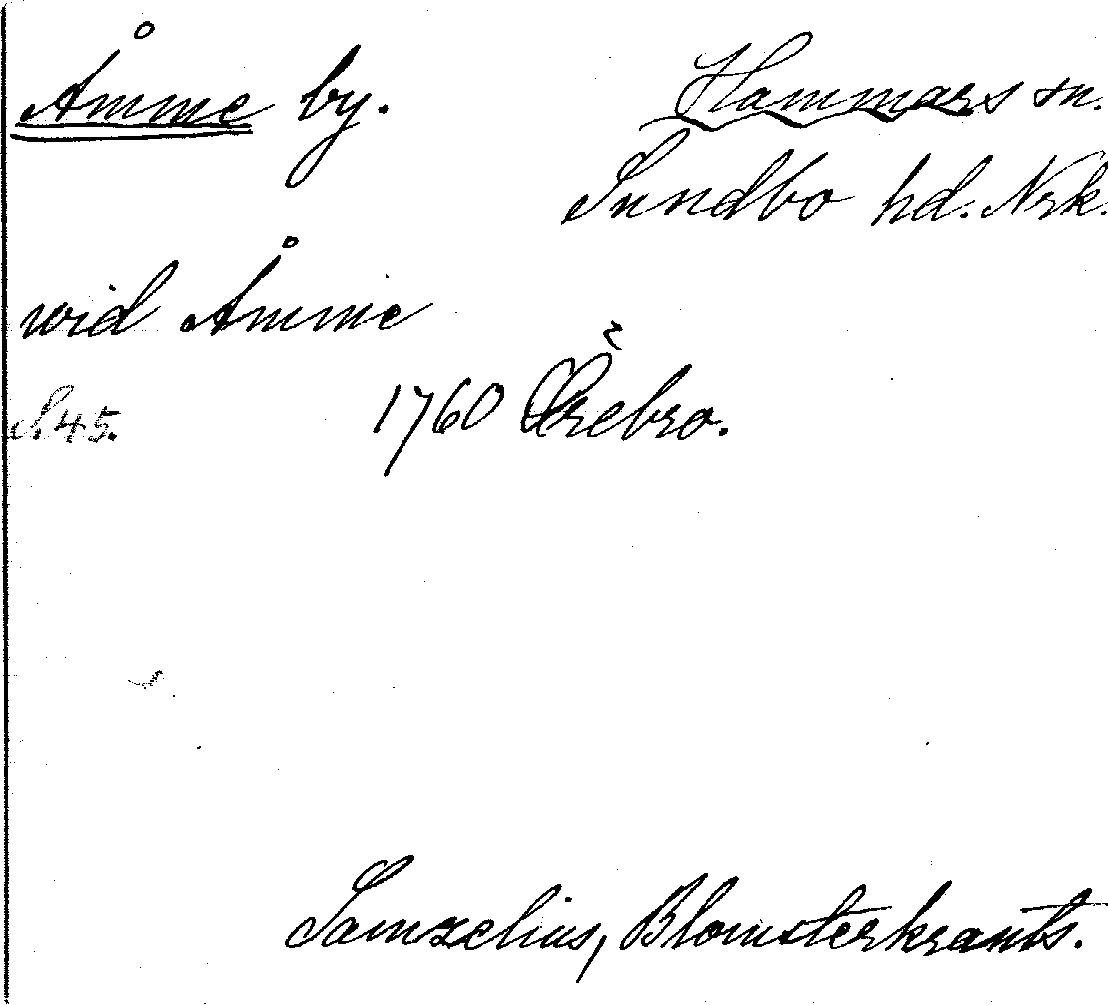 Åmme by. Hammars sn.
Sundbo hd. Nrk.
wid Åmme
S. 45. 1760 Örebro.
Samzelius, Blomsterkrants.